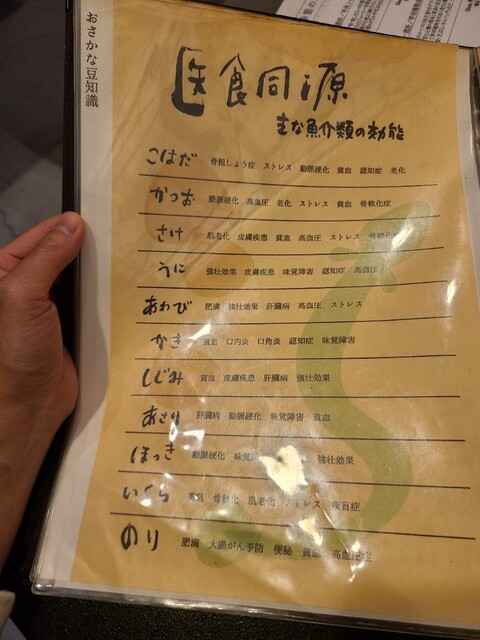 おさかな豆知識
医食同源
主な魚介類の効能
こはだ 骨粗しょう症 ストレス 動脈硬化 貧血 認知症 老化
かつお 動脈硬化 高血圧 老化 ストレス 貧血 骨軟化症
さけ 肌老化 皮膚疾患 貧血 高血圧 ストレス 骨軟化
うに 強壮効果 皮膚疾患 味覚障害 認知症 高血圧
あわび 肥満 強壮効果 肝臓病 高血圧 ストレス
かき 貧血 口内炎 口角炎 認知症 味覚障害
しじみ 貧血 皮膚疾患 肝臓病 強壮効果
あさり 肝臓病 動脈硬化 味覚障害 貧血
ほっき 動脈硬化 味覚 強壮効果
いくら 肌老化 ストレス 夜盲症
のり 肥満 大腸がん予防 便秘 貧血 高血圧症